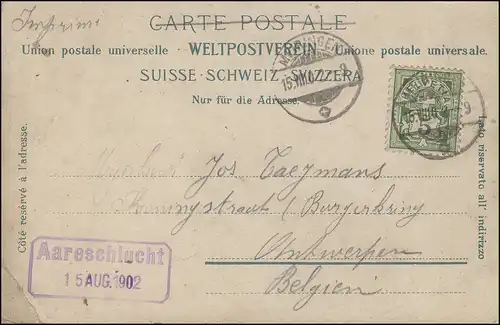 Imprimé
CARTE POSTALE
Union postale universelle · WELTPOSTVEREIN · Unione postale universale.
SUISSE·SCHWEIZ·SVIZZERA
Nur für die Adresse.
MEIRINGEN
15.VIII.02
HELVETIA
5
Côté réservé à l'adresse.
Lato riservato all' indirizzo
Jos Taeymans
(Burgerkring
Antwerpen
Belgien
Aareschlucht
15 AUG.1902